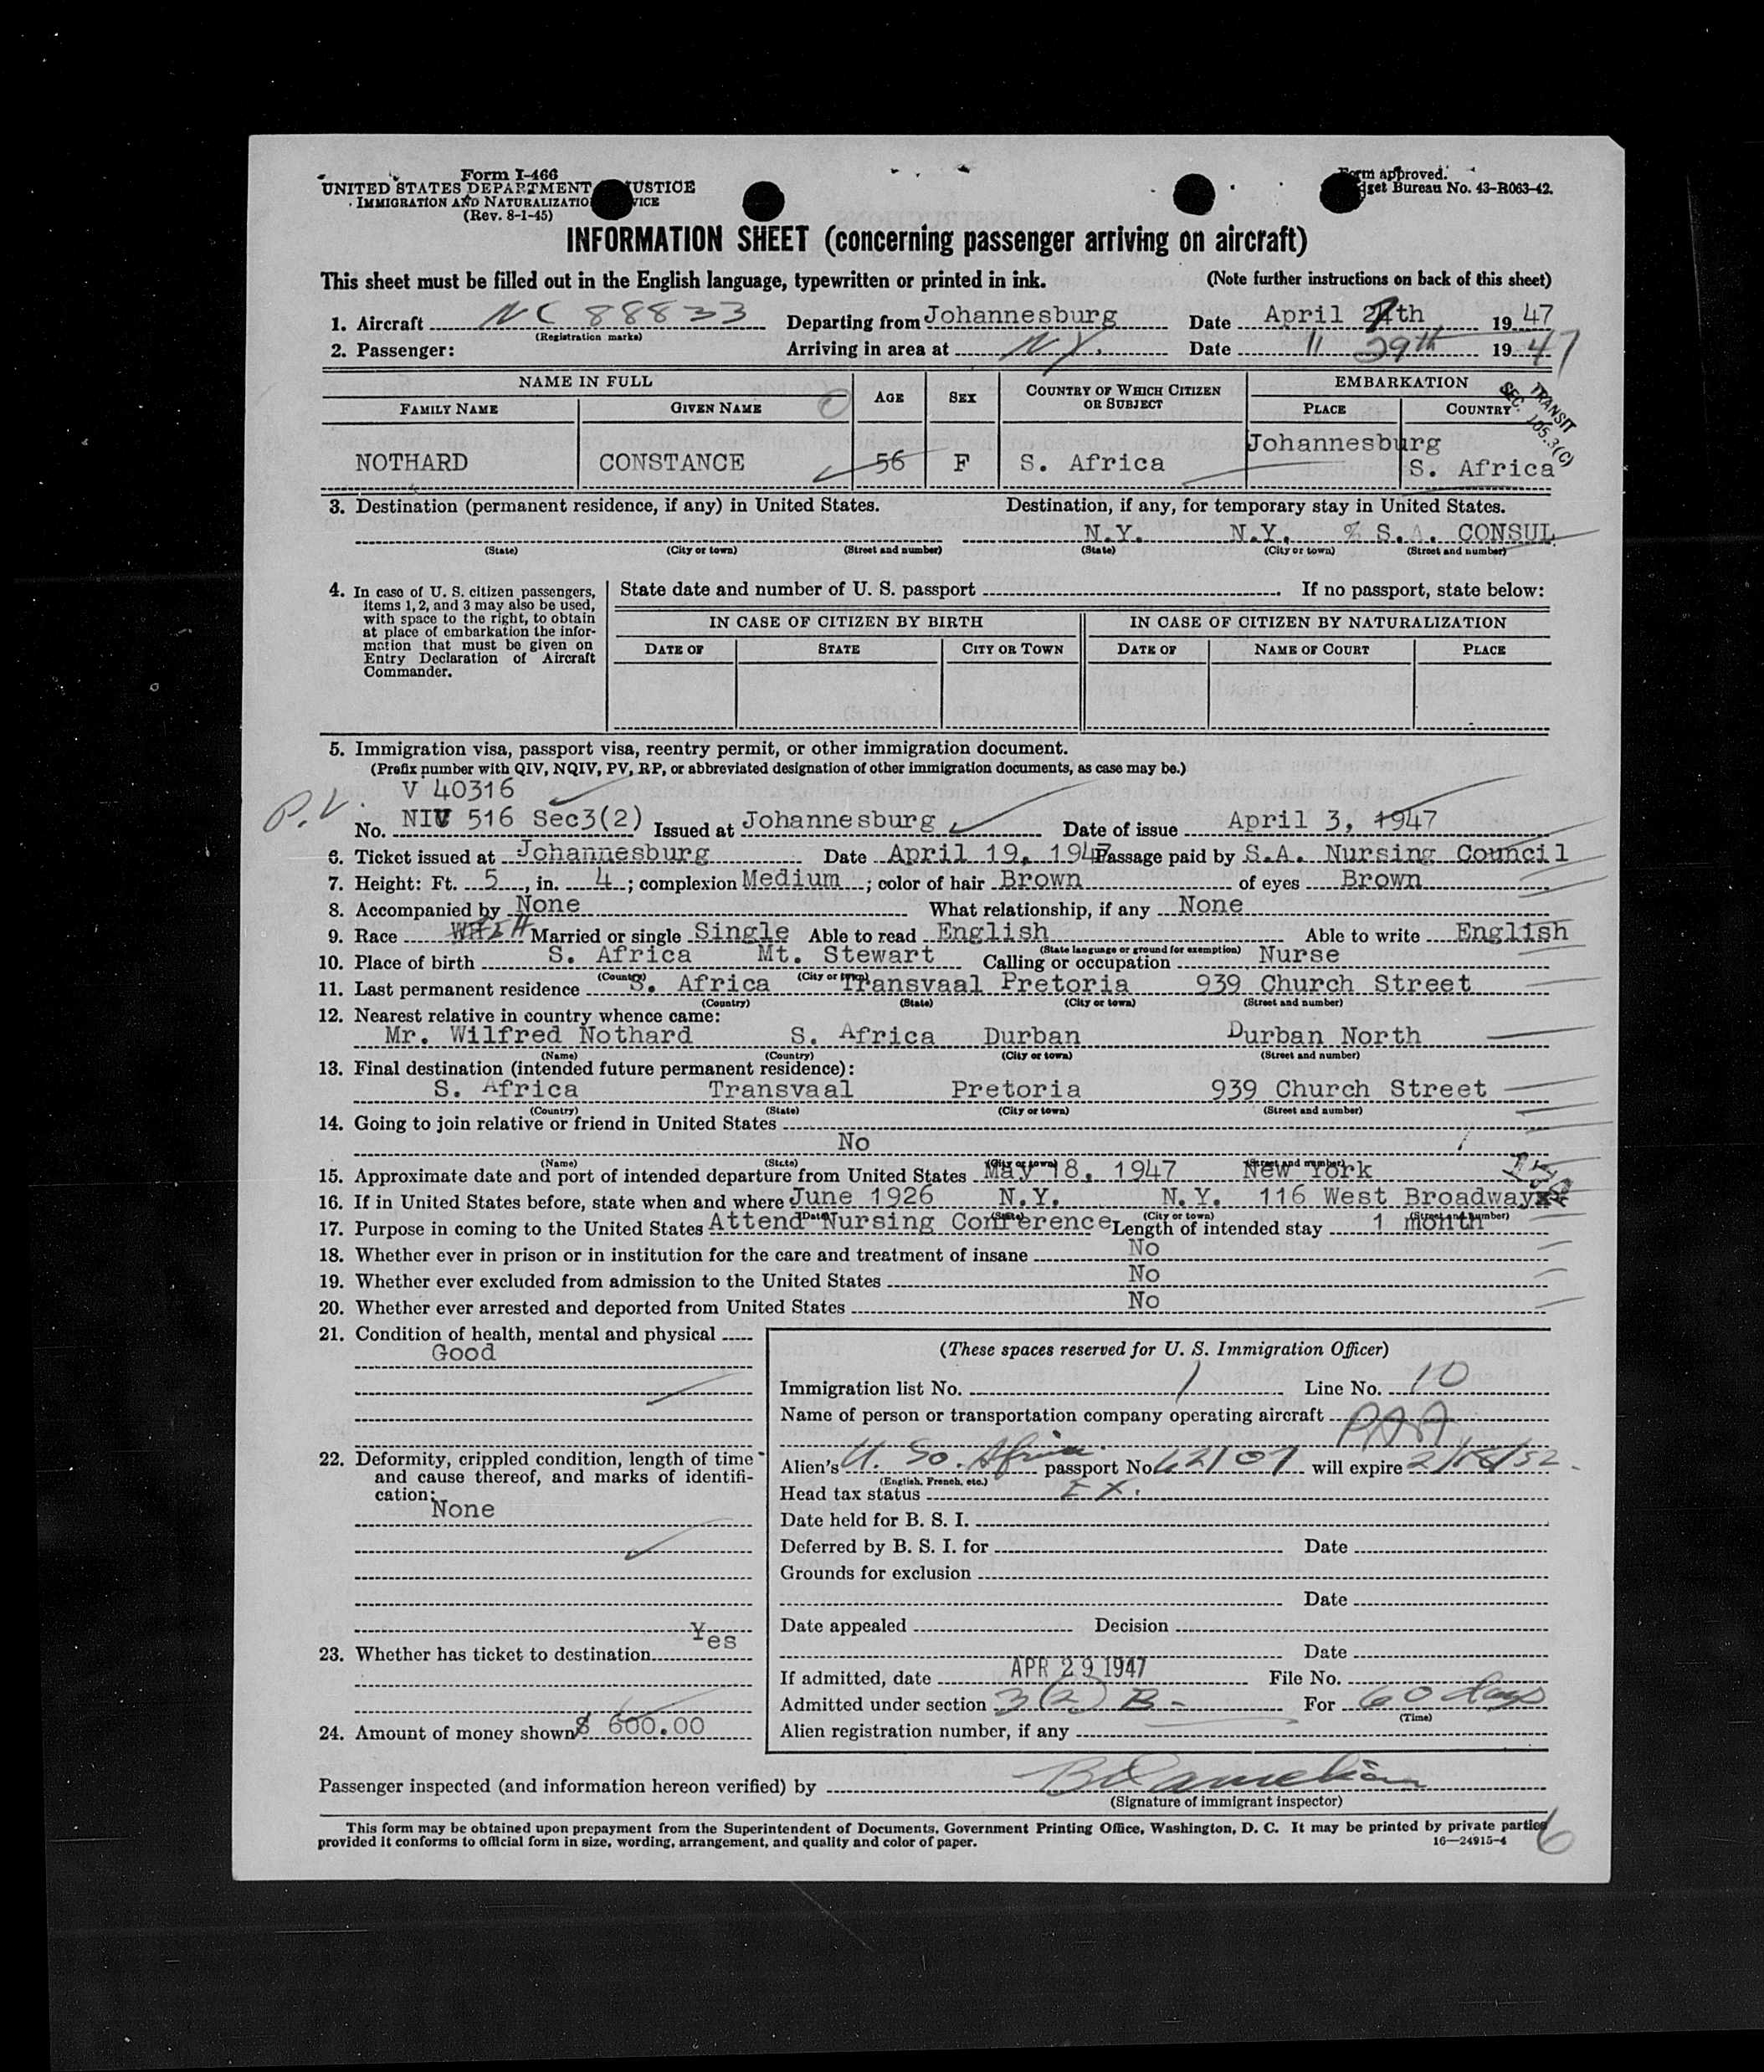 Form I-466
UNITED STATES DEPARTMENT USTICE
IMMIGRATION AND NATURALIZATIO VICE
(Rev. 8-1-45)
rm approved.
dget Bureau No. 43-R063-42.
INFORMATION SHEET (concerning passenger arriving on aircraft)
This sheet must be filled out in the English language, typewritten or printed in ink. (Note further instructions on back of this sheet)
1. Aircraft NC 88833 Departing from Johannesburg Date April 27th 19 47
(Registration marks)
2. Passenger: Arriving in area at N.Y. Date 11 29th 19 47
NAME IN FULL AGE SEX COUNTRY OF WHICH CITIZEN OR SUBJECT EMBARKATION
FAMILY NAME GIVEN NAME PLACE COUNTRY
TRANSIT
SEC. 105.3(C)
NOTHARD CONSTANCE 56 F S. Africa Johannesburg S. Africa
3. Destination (permanent residence, if any) in United States. Destination, if any, for temporary stay in United States.
N.Y. N.Y. % S.A. CONSUL
(State) (City or town) (Street and number) (State) (City or town) (Street and number)
4. In case of U. S. citizen passengers, items 1, 2, and 3 may also be used, with space to the right, to obtain at place of embarkation the information that must be given on Entry Declaration of Aircraft Commander.
State date and number of U. S. passport If no passport, state below:
IN CASE OF CITIZEN BY BIRTH IN CASE OF CITIZEN BY NATURALIZATION
DATE OF STATE CITY OR TOWN DATE OF NAME OF COURT PLACE
5. Immigration visa, passport visa, reentry permit, or other immigration document.
(Prefix number with QIV, NQIV, PV, RP, or abbreviated designation of other immigration documents, as case may be.)
V 40316
P.V.
No. NIV 516 Sec3(2) Issued at Johannesburg Date of issue April 3, 1947
6. Ticket issued at Johannesburg Date April 19, 1947 Passage paid by S.A. Nursing Council
7. Height: Ft. 5, in. 4; complexion Medium; color of hair Brown of eyes Brown
8. Accompanied by None What relationship, if any None
9. Race Married or single Single Able to read English Able to write English
(State language or ground for exemption)
10. Place of birth S. Africa Mt. Stewart Calling or occupation Nurse
(Country) (City or town)
11. Last permanent residence S. Africa Transvaal Pretoria 939 Church Street
(Country) (State) (City or town) (Street and number)
12. Nearest relative in country whence came:
Mr. Wilfred Nothard S. Africa Durban Durban North
(Name) (Country) (City or town) (Street and number)
13. Final destination (intended future permanent residence):
S. Africa Transvaal Pretoria 939 Church Street
(Country) (State) (City or town) (Street and number)
14. Going to join relative or friend in United States
No
(Name) (State) (City or town) (Street and number)
15. Approximate date and port of intended departure from United States May 18, 1947 New York
16. If in United States before, state when and where June 1926 N.Y. N.Y. 116 West Broadway
(Date) (State) (City or town) (Street and number)
17. Purpose in coming to the United States Attend Nursing Conference Length of intended stay 1 month
18. Whether ever in prison or in institution for the care and treatment of insane No
19. Whether ever excluded from admission to the United States No
20. Whether ever arrested and deported from United States No
21. Condition of health, mental and physical
Good
22. Deformity, crippled condition, length of time and cause thereof, and marks of identification:
None
23. Whether has ticket to destination Yes
24. Amount of money shown $ 600.00
(These spaces reserved for U. S. Immigration Officer)
Immigration list No. 1 Line No. 10
Name of person or transportation company operating aircraft PAA
Alien's U. So. Africa passport No. 62107 will expire 2/18/52
(English, French, etc.)
Head tax status EX.
Date held for B. S. I.
Deferred by B. S. I. for Date
Grounds for exclusion
Date
Date appealed Decision
Date
If admitted, date APR 29 1947 File No.
Admitted under section 3(2) B- For 60 days
(Time)
Alien registration number, if any
Passenger inspected (and information hereon verified) by
(Signature of immigrant inspector)
This form may be obtained upon prepayment from the Superintendent of Documents, Government Printing Office, Washington, D. C. It may be printed by private parties
provided it conforms to official form in size, wording, arrangement, and quality and color of paper. 16—24915-4
6